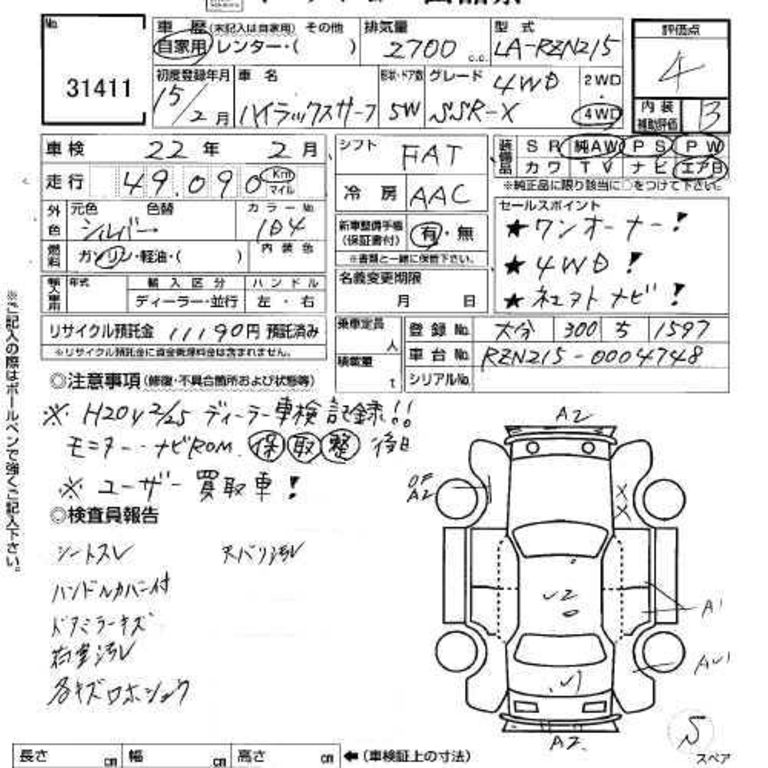 No. 31411
車歴 (未記入は自家用) その他
自家用 レンター・( )
排気量 2700 c.c.
型式 LA-RZN215
評価点 4
初度登録年月 15/2月
車名 ハイラックスサーフ
形状・ドア数 5W
グレード 4WD SSR-X
2WD・4WD
内装補助評価 B
車検 22年 2月
シフト FAT
装備品 SR 純AW PS PW
カワ TV ナビ エアB
※純正品に限り該当に○をつけて下さい。
走行 49,090 Km マイル
冷房 AAC
外色 元色 シルバー 色替 カラーNo. 1D4
新車整備手帳(保証書付) 有・無
※書類と一緒に保管下さい。
セールスポイント
★ワンオーナー!
★4WD!
燃料 ガソリン・軽油・( ) 内装色
輸入車用 年式 輸入区分 ハンドル
ディーラー・並行 左・右
名義変更期限 月 日
リサイクル預託金 11190円 預託済み
※リサイクル預託金に資金管理料金は含まれません。
乗車定員 人
積載量 t
登録No. 大分 300 ち 1597
車台No. RZN215-0004748
シリアルNo.
◎注意事項(修復・不具合箇所および状態等)
※ H20 V2/25 ディーラー車検記録!!
モニター・ナビROM 保 取 整 後日
※ ユーザー買取車!
◎検査員報告
シートスレ 天バリ汚レ
ハンドルカバー付
ドアミラーキズ
荷室汚レ
各キズ
A2
A2
U2
A1
A2
S
スペア
長さ cm 幅 cm 高さ cm ←(車検証上の寸法)
※ご記入の際はボールペンで強くご記入下さい。